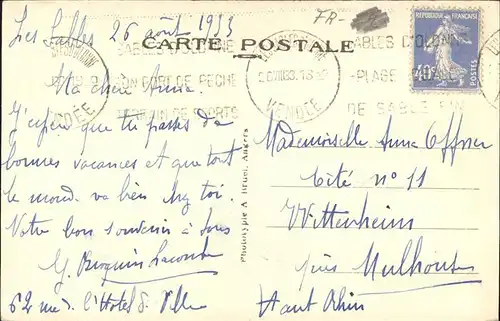 FR-
Les Sables 26 août 1933
CARTE POSTALE
RÉPUBLIQUE FRANÇAISE
40c
POSTES
SABLES D'OLONNE
SON PORT DE PÊCHE
TERRAIN DE SPORTS
VENDÉE
SABLES D'OLONNE
PLAGE
DE SABLE FIN
Ma chère Anna.
J'espère que tu passes de
bonnes vacances et que tout
le monde va bien chez toi.
Votre bon souvenir à tous
G. Lacombe
62 rue de l'Hôtel de Ville
Phototypie A. Bruel, Angers
Mademoiselle Anna Offner
Cité n° 11
Wittenheim
près Mulhouse
Haut Rhin